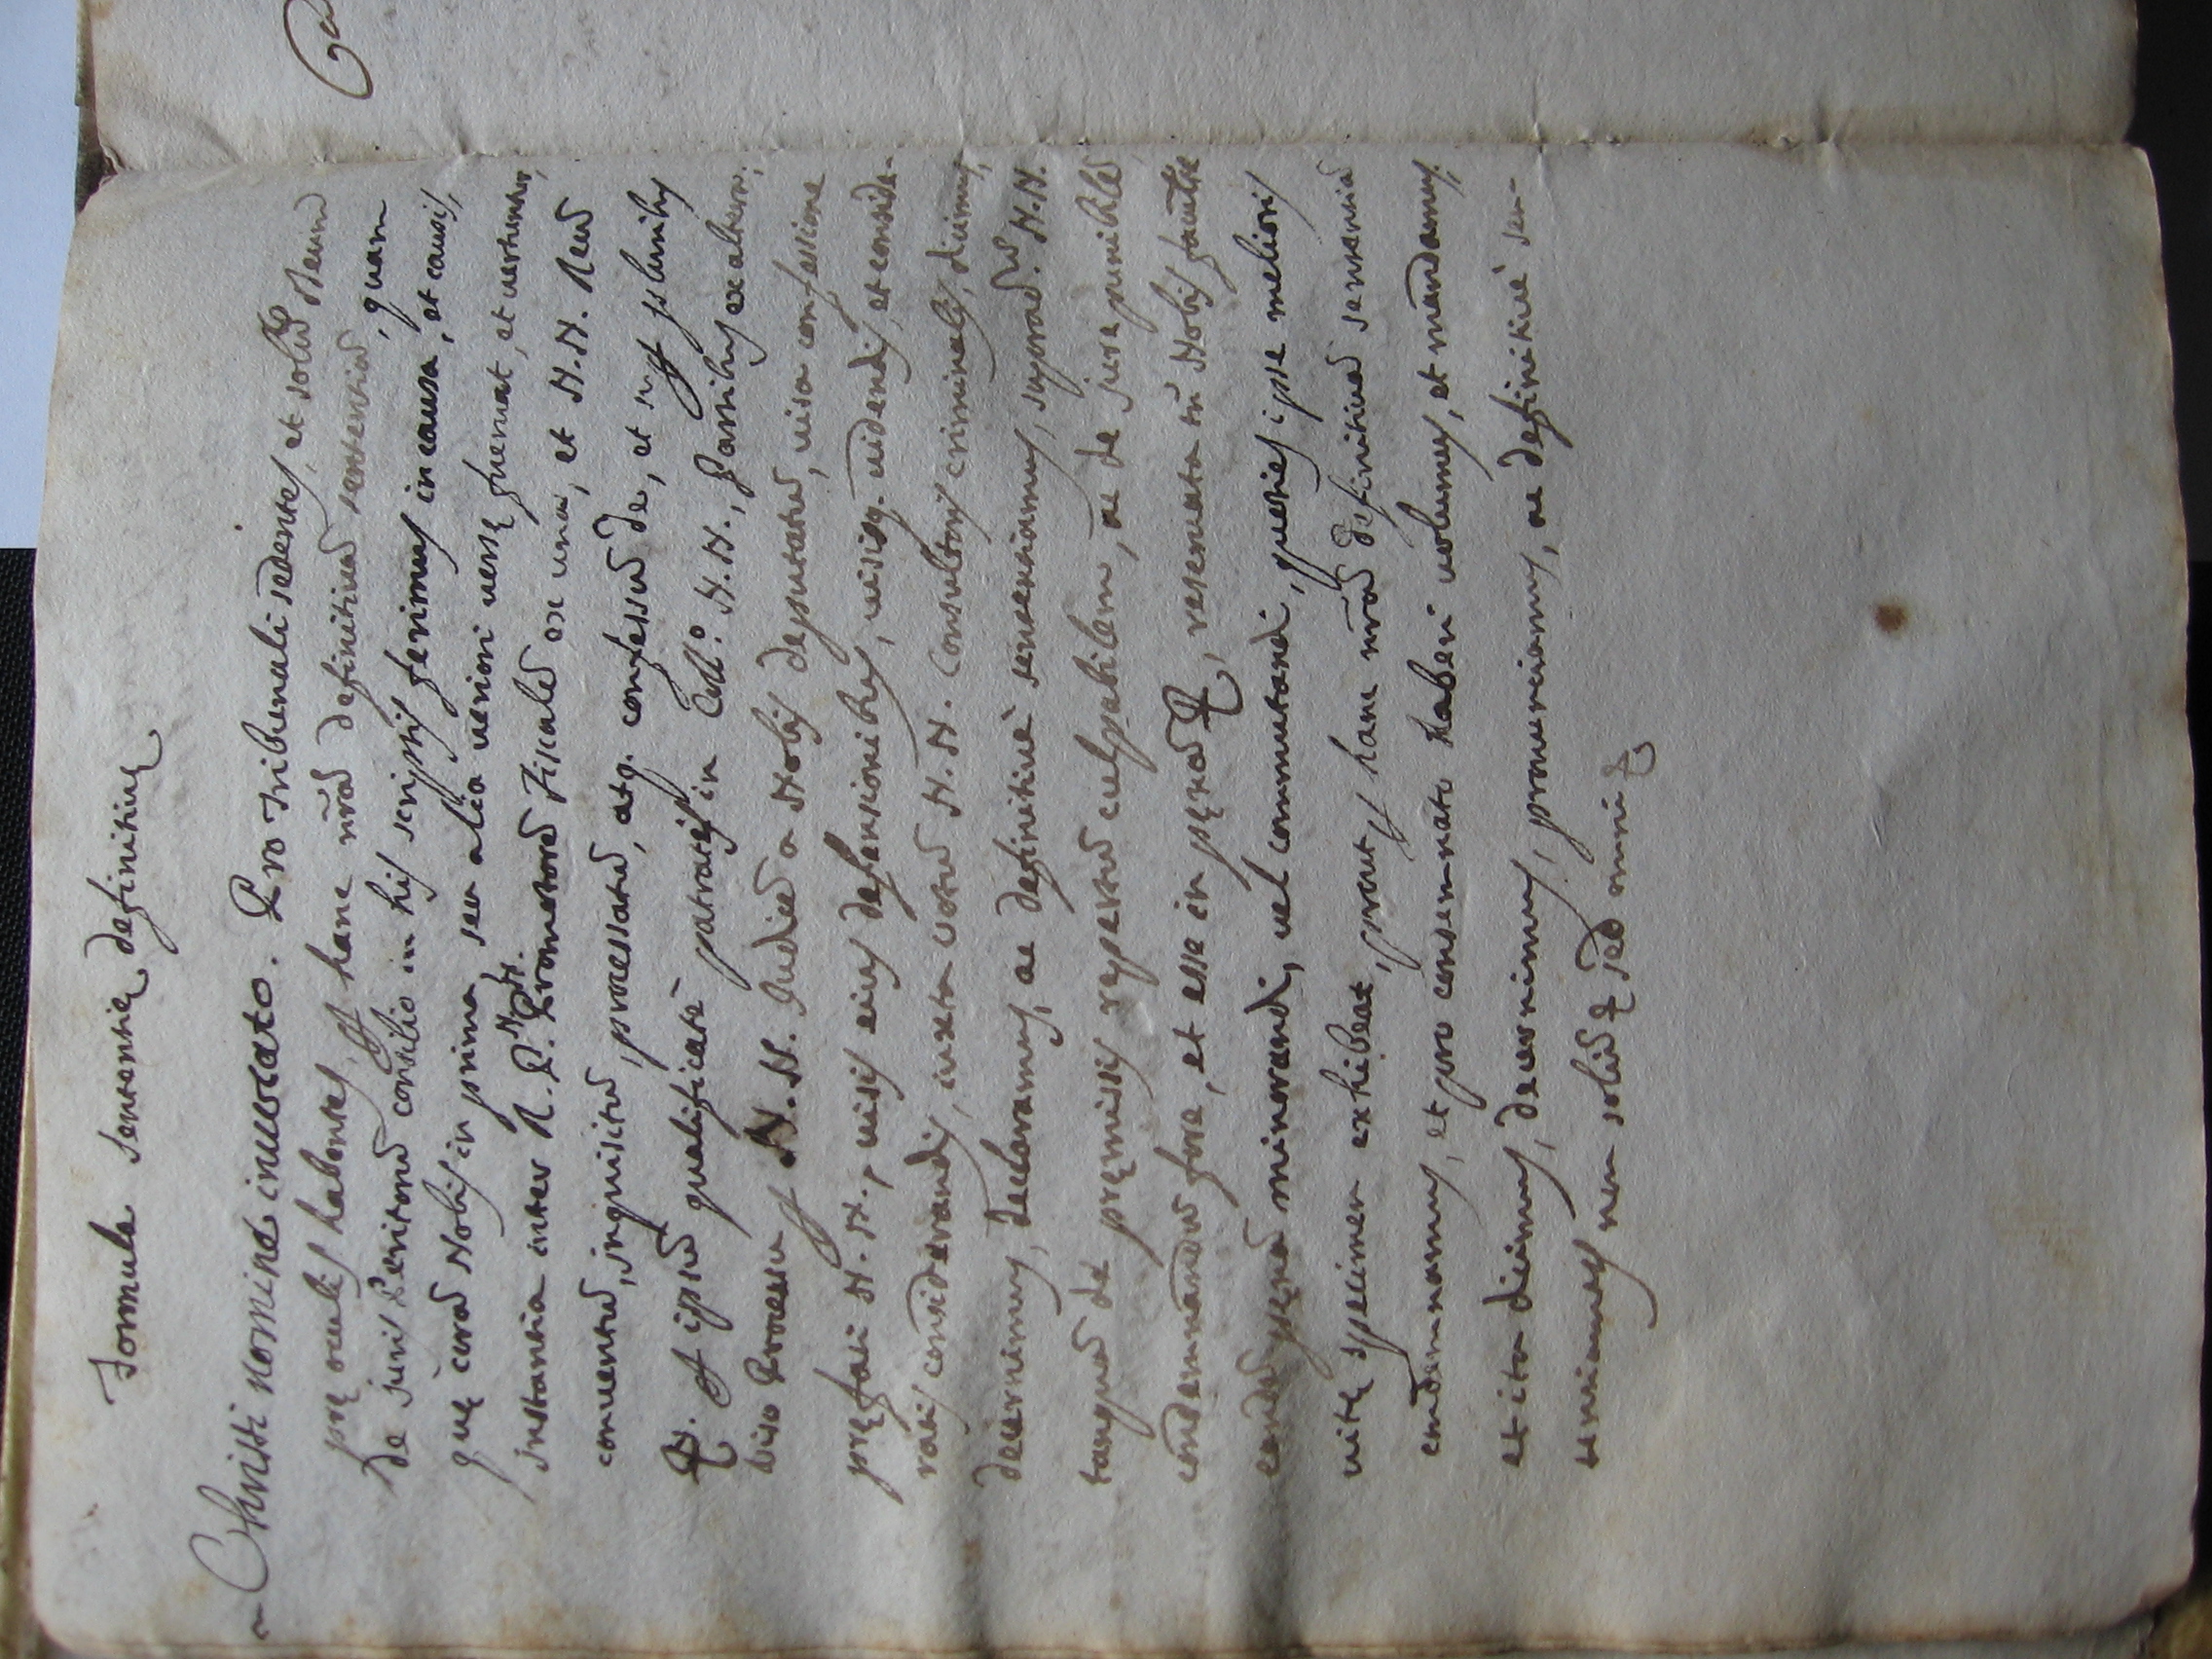 Formula sententię definitiuę
Christi nomine inuocato. Pro tribunali sedentes, et solũ Deum
prę oculis habentes, hanc nrãm definitiuã sententiã, quam
de juris Peritorũ consilio in his scriptis ferimus in causa, et causis,
quę corã Nobis in prima, seu alia ueriori uersę fuerunt, et uertuntur,
instantia inter R. P. N. N. Promotorẽ Fiscalẽ ex una, et N. N. Reũ
conuentũ, inquisitũ, processatũ, atq. confessũ de, et super
N. et ipsũ qualificatè patratis in N. N., partibus ex altera,
Viso Processu per N. N. Judicẽ a Nobis deputatũ, uisa confessione
pręfati N. N., uisis eius defensionibus, uisisq. uidendis, et conside-
ratis considerandis, iuxta uotũ N. N. Consultoris criminalis, dicimus,
decernimus, declaramus, ac definitiuè sententiamus, suprad.ũ N. N.
tanquã de pręmissis repertũ culpabilem, ac de jure punibilẽ
condemnandũ fore, et esse in pęnã, reseruata tñ Nobis facultate
eandẽ pęnã minorandi, uel commutandi, quoties ipse melioris
uitę specimen exhibeat, prout per hanc nrãm definitiuã sententiã
condemnamus, et pro condemnato haberi uolumus, et mandamus,
et ita dicimus, decernimus, pronunciamus, ac definitiuè sen-
tentiamus non solũ sed omni